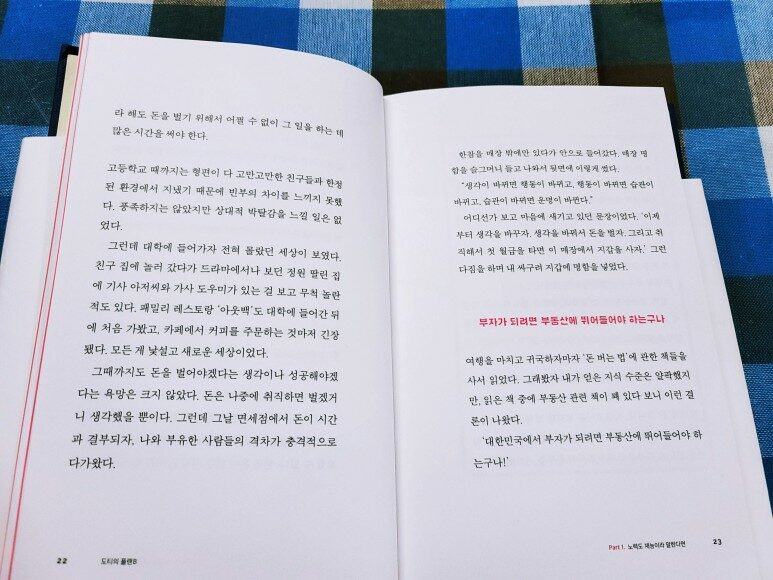 라 해도 돈을 벌기 위해서 어쩔 수 없이 그 일을 하는 데
많은 시간을 써야 한다.
고등학교 때까지는 형편이 다 고만고만한 친구들과 한정
된 환경에서 지냈기 때문에 빈부의 차이를 느끼지 못했
다. 풍족하지는 않았지만 상대적 박탈감을 느낄 일은 없
었다.
그런데 대학에 들어가자 전혀 몰랐던 세상이 보였다.
친구 집에 놀러 갔다가 드라마에서나 보던 정원 딸린 집
에 기사 아저씨와 가사 도우미가 있는 걸 보고 무척 놀란
적도 있다. 패밀리 레스토랑 ‘아웃백’도 대학에 들어간 뒤
에 처음 가봤고, 카페에서 커피를 주문하는 것마저 긴장
됐다. 모든 게 낯설고 새로운 세상이었다.
그때까지도 돈을 벌어야겠다는 생각이나 성공해야겠
다는 욕망은 크지 않았다. 돈은 나중에 취직하면 벌겠거
니 생각했을 뿐이다. 그런데 그날 면세점에서 돈이 시간
과 결부되자, 나와 부유한 사람들의 격차가 충격적으로
다가왔다.
22 도티의 플랜B
한참을 매장 밖에만 있다가 안으로 들어갔다. 매장 명
함을 슬그머니 들고 나와서 뒷면에 이렇게 썼다.
“생각이 바뀌면 행동이 바뀌고, 행동이 바뀌면 습관이
바뀌고, 습관이 바뀌면 운명이 바뀐다.”
어디선가 보고 마음에 새기고 있던 문장이었다. ‘이제
부터 생각을 바꾸자. 생각을 바꿔서 돈을 벌자. 그리고 취
직해서 첫 월급을 타면 이 매장에서 지갑을 사자.’ 그런
다짐을 하며 내 싸구려 지갑에 명함을 넣었다.
부자가 되려면 부동산에 뛰어들어야 하는구나
여행을 마치고 귀국하자마자 ‘돈 버는 법’에 관한 책들을
사서 읽었다. 그래봤자 내가 얻은 지식 수준은 얄팍했지
만, 읽은 책 중에 부동산 관련 책이 꽤 있다 보니 이런 결
론이 나왔다.
‘대한민국에서 부자가 되려면 부동산에 뛰어들어야 하
는구나!’
Part 1. 노력도 재능이라 말한다면 23